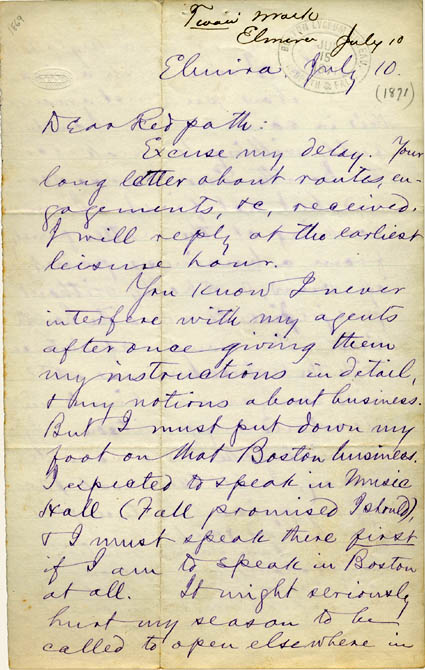 1869
Twain Mark
Elmira July 10
Elmira July 10.
(1871)
Dear Redpath:
Excuse my delay. Your
long letter about routes, en-
gagements, &c, received.
I will reply at the earliest
leisure hour.
You know I never
interfere with my agents
after once giving them
my instructions in detail,
& my notions about business.
But I must put down my
foot on that Boston business.
I expected to speak in Music
Hall (Fall promised I should),
& I must speak there first
if I am to speak in Boston
at all. It might seriously
hurt my season to be
called to open elsewhere in